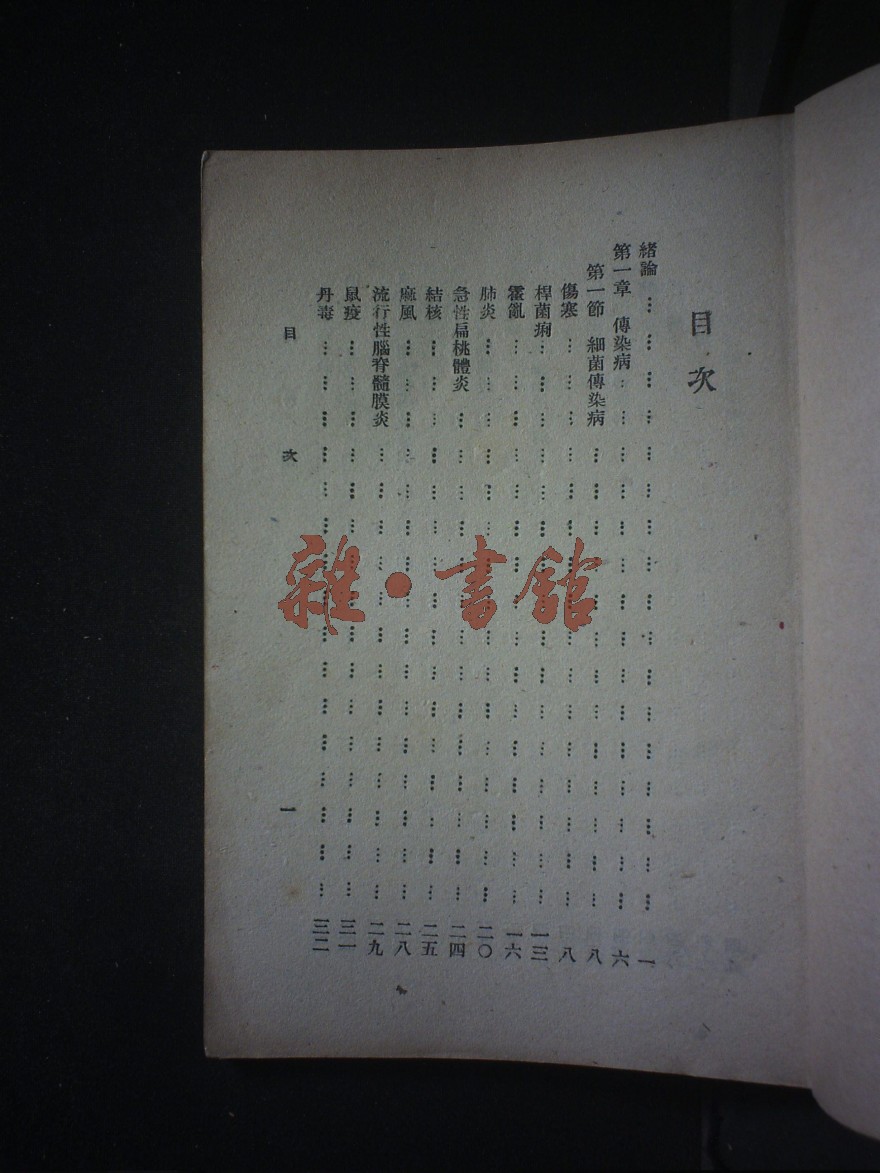 目次
緒論 … … … … … … … … … … … … … … … … … 一
第一章 傳染病 … … … … … … … … … … … … … … … 六
第一節 細菌傳染病 … … … … … … … … … … … … … 八
傷寒 … … … … … … … … … … … … … … … … 八
桿菌痢 … … … … … … … … … … … … … … … … 一三
霍亂 … … … … … … … … … … … … … … … … 一六
肺炎 … … … … … … … … … … … … … … … … 二〇
急性扁桃體炎 … … … … … … … … … … … … … … 二四
結核 … … … … … … … … … … … … … … … … 二五
麻風 … … … … … … … … … … … … … … … … 二八
流行性腦脊髓膜炎 … … … … … … … … … … … … … 二九
鼠疫 … … … … … … … … … … … … … … … … 三一
丹毒 … … … … … … … … … … … … … … … … 三二
目次 一
雜·書館